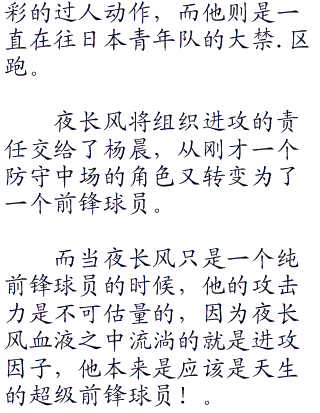 彩的过人动作，而他则是一
直在往日本青年队的大禁.区
跑。
夜长风将组织进攻的责
任交给了杨晨，从刚才一个
防守中场的角色又转变为了
一个前锋球员。
而当夜长风只是一个纯
前锋球员的时候，他的攻击
力是不可估量的，因为夜长
风血液之中流淌的就是进攻
因子，他本来是应该是天生
的超级前锋球员！。